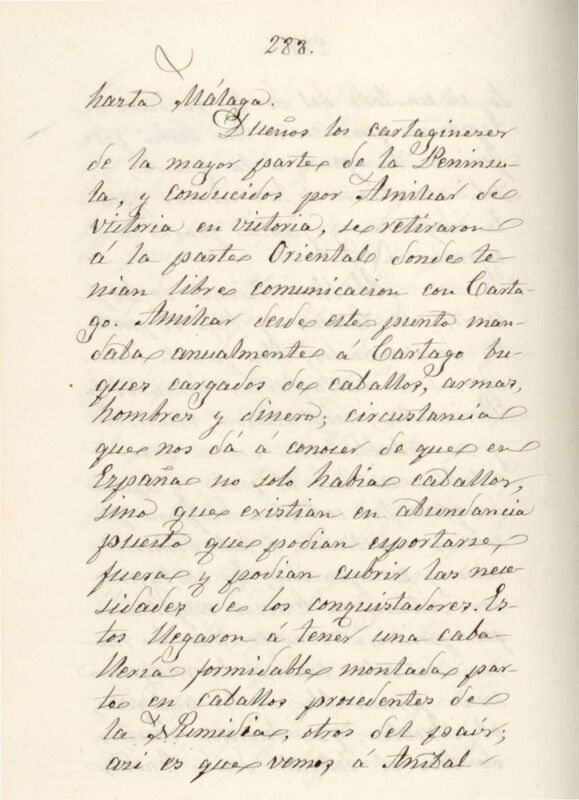 283.
hasta Málaga.
Dueños los cartagineses
de la mayor parte de la Penínsu-
la, y conducidos por Amilcar de
victoria en victoria, se retiraron
á la parte Oriental donde te-
nian libre comunicacion con Carta-
go. Amilcar desde este punto man-
daba anualmente á Cartago bu-
ques cargados de caballos, armas,
hombres y dinero; circustancia
que nos dá á conocer de que en
España no solo habia caballos,
sino que existian en abundancia
puesto que podian esportarse
fuera y podian cubrir las nece-
sidades de los conquistadores. Es-
tos llegaron á tener una caba-
lleria formidable montada par-
te en caballos prosedentes de
la Numidia, otros del pais;
asi es que vemos á Anibal